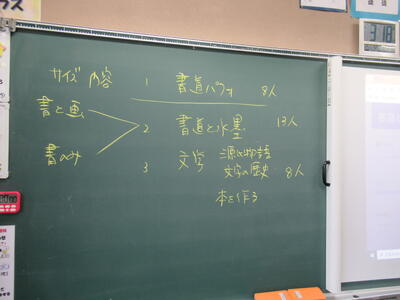 サイズ 内容 1 書道パフォ 8人
書と画
2 書道と水墨 13人
書のみ
3 文学 源氏物語
文字の歴史 8人
本を作る